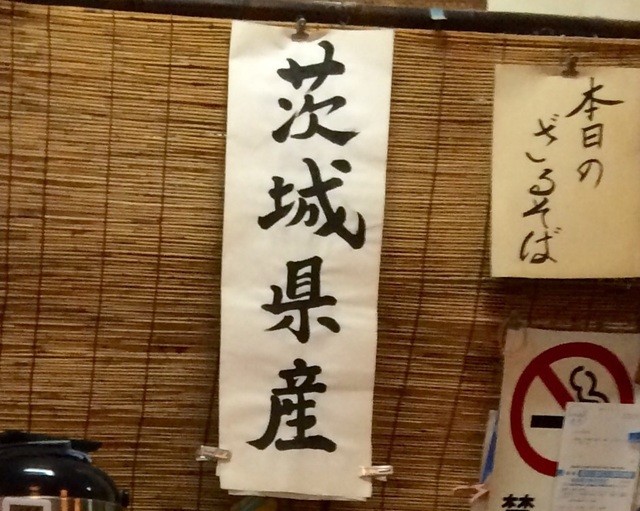 茨城県産
本日の
ざるそば
禁